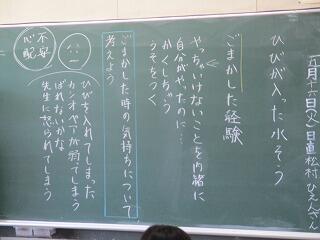 五月十六日(火)日直松村ひえんざん
ひびが入った水そう
ごまかした経験
やっちゃいけないことを内緒に
自分がやったのに…
かくしちゃう
うそをつく
ごまかした時の気持ちについて
考えよう
ひびを入れてしまった
カシオペーアが弱ってしまう
ばれないかな
先生に怒られてしまう
不安
心配